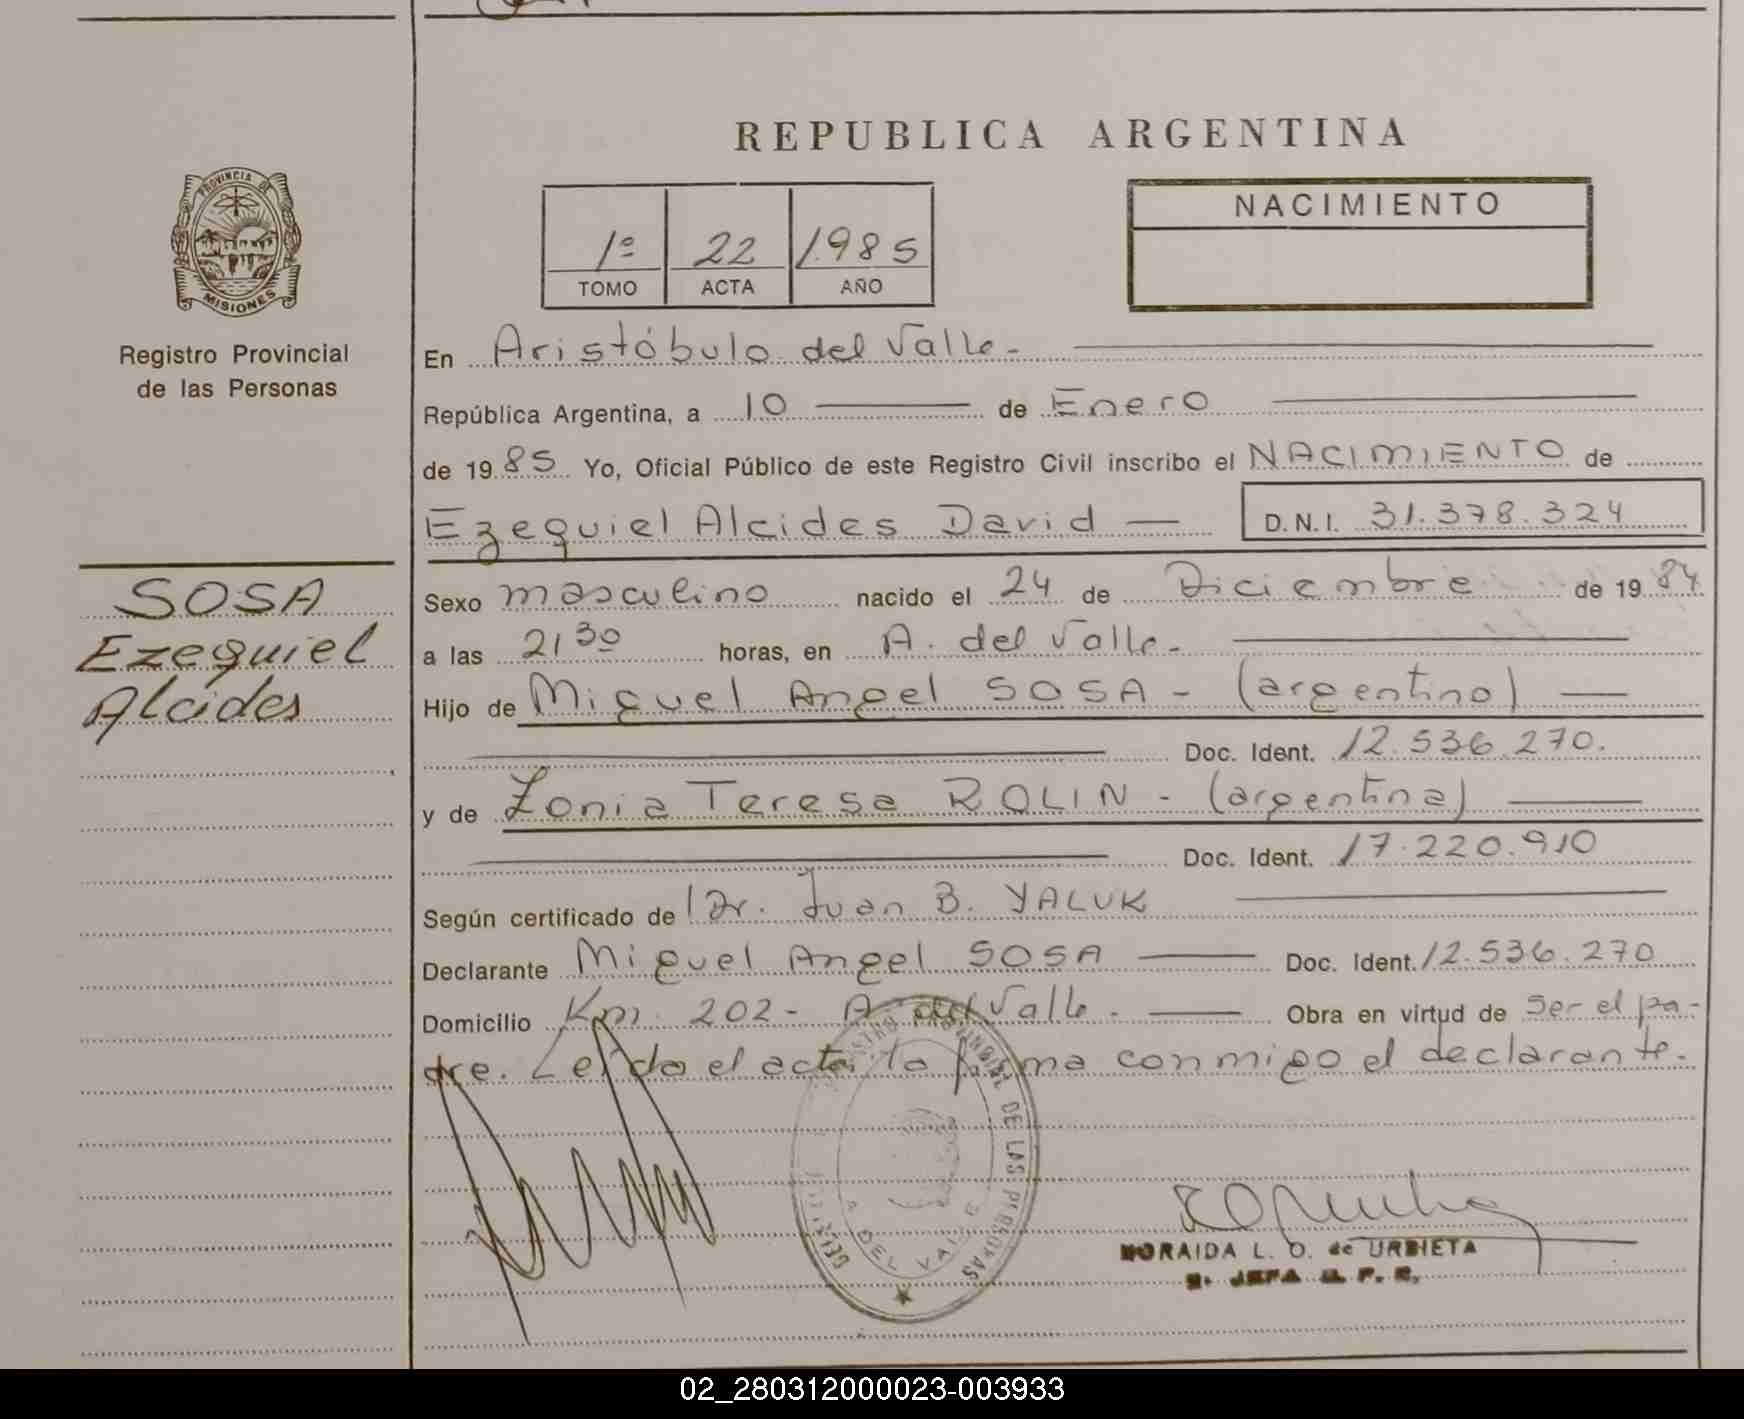 REPUBLICA ARGENTINA
PROVINCIA DE
MISIONES
Registro Provincial
de las Personas
1º 22 1985
TOMO ACTA AÑO
NACIMIENTO
En Aristóbulo del Valle.-
República Argentina, a 10 de Enero
de 1985 Yo, Oficial Público de este Registro Civil inscribo el NACIMIENTO de
Ezequiel Alcides David — D.N.I. 31.378.324
SOSA
Ezequiel
Alcides
Sexo masculino nacido el 24 de Diciembre de 1984
a las 21 30 horas, en A. del Valle.-
Hijo de Miguel Angel SOSA - (argentino) —
Doc. Ident. 12.536.270.
y de Zonia Teresa ROLIN - (argentina) —
Doc. Ident. 17.220.910
Según certificado de Dr. Juan B. YALUK
Declarante Miguel Angel SOSA — Doc. Ident. 12.536.270
Domicilio Km. 202- A. del Valle. — Obra en virtud de ser el pa-
dre. Leída el acta, la firma conmigo el declarante.-
DE LAS PERSONAS
DEL VALLE
NORAIDA L. O. de URBIETA
02_280312000023-003933